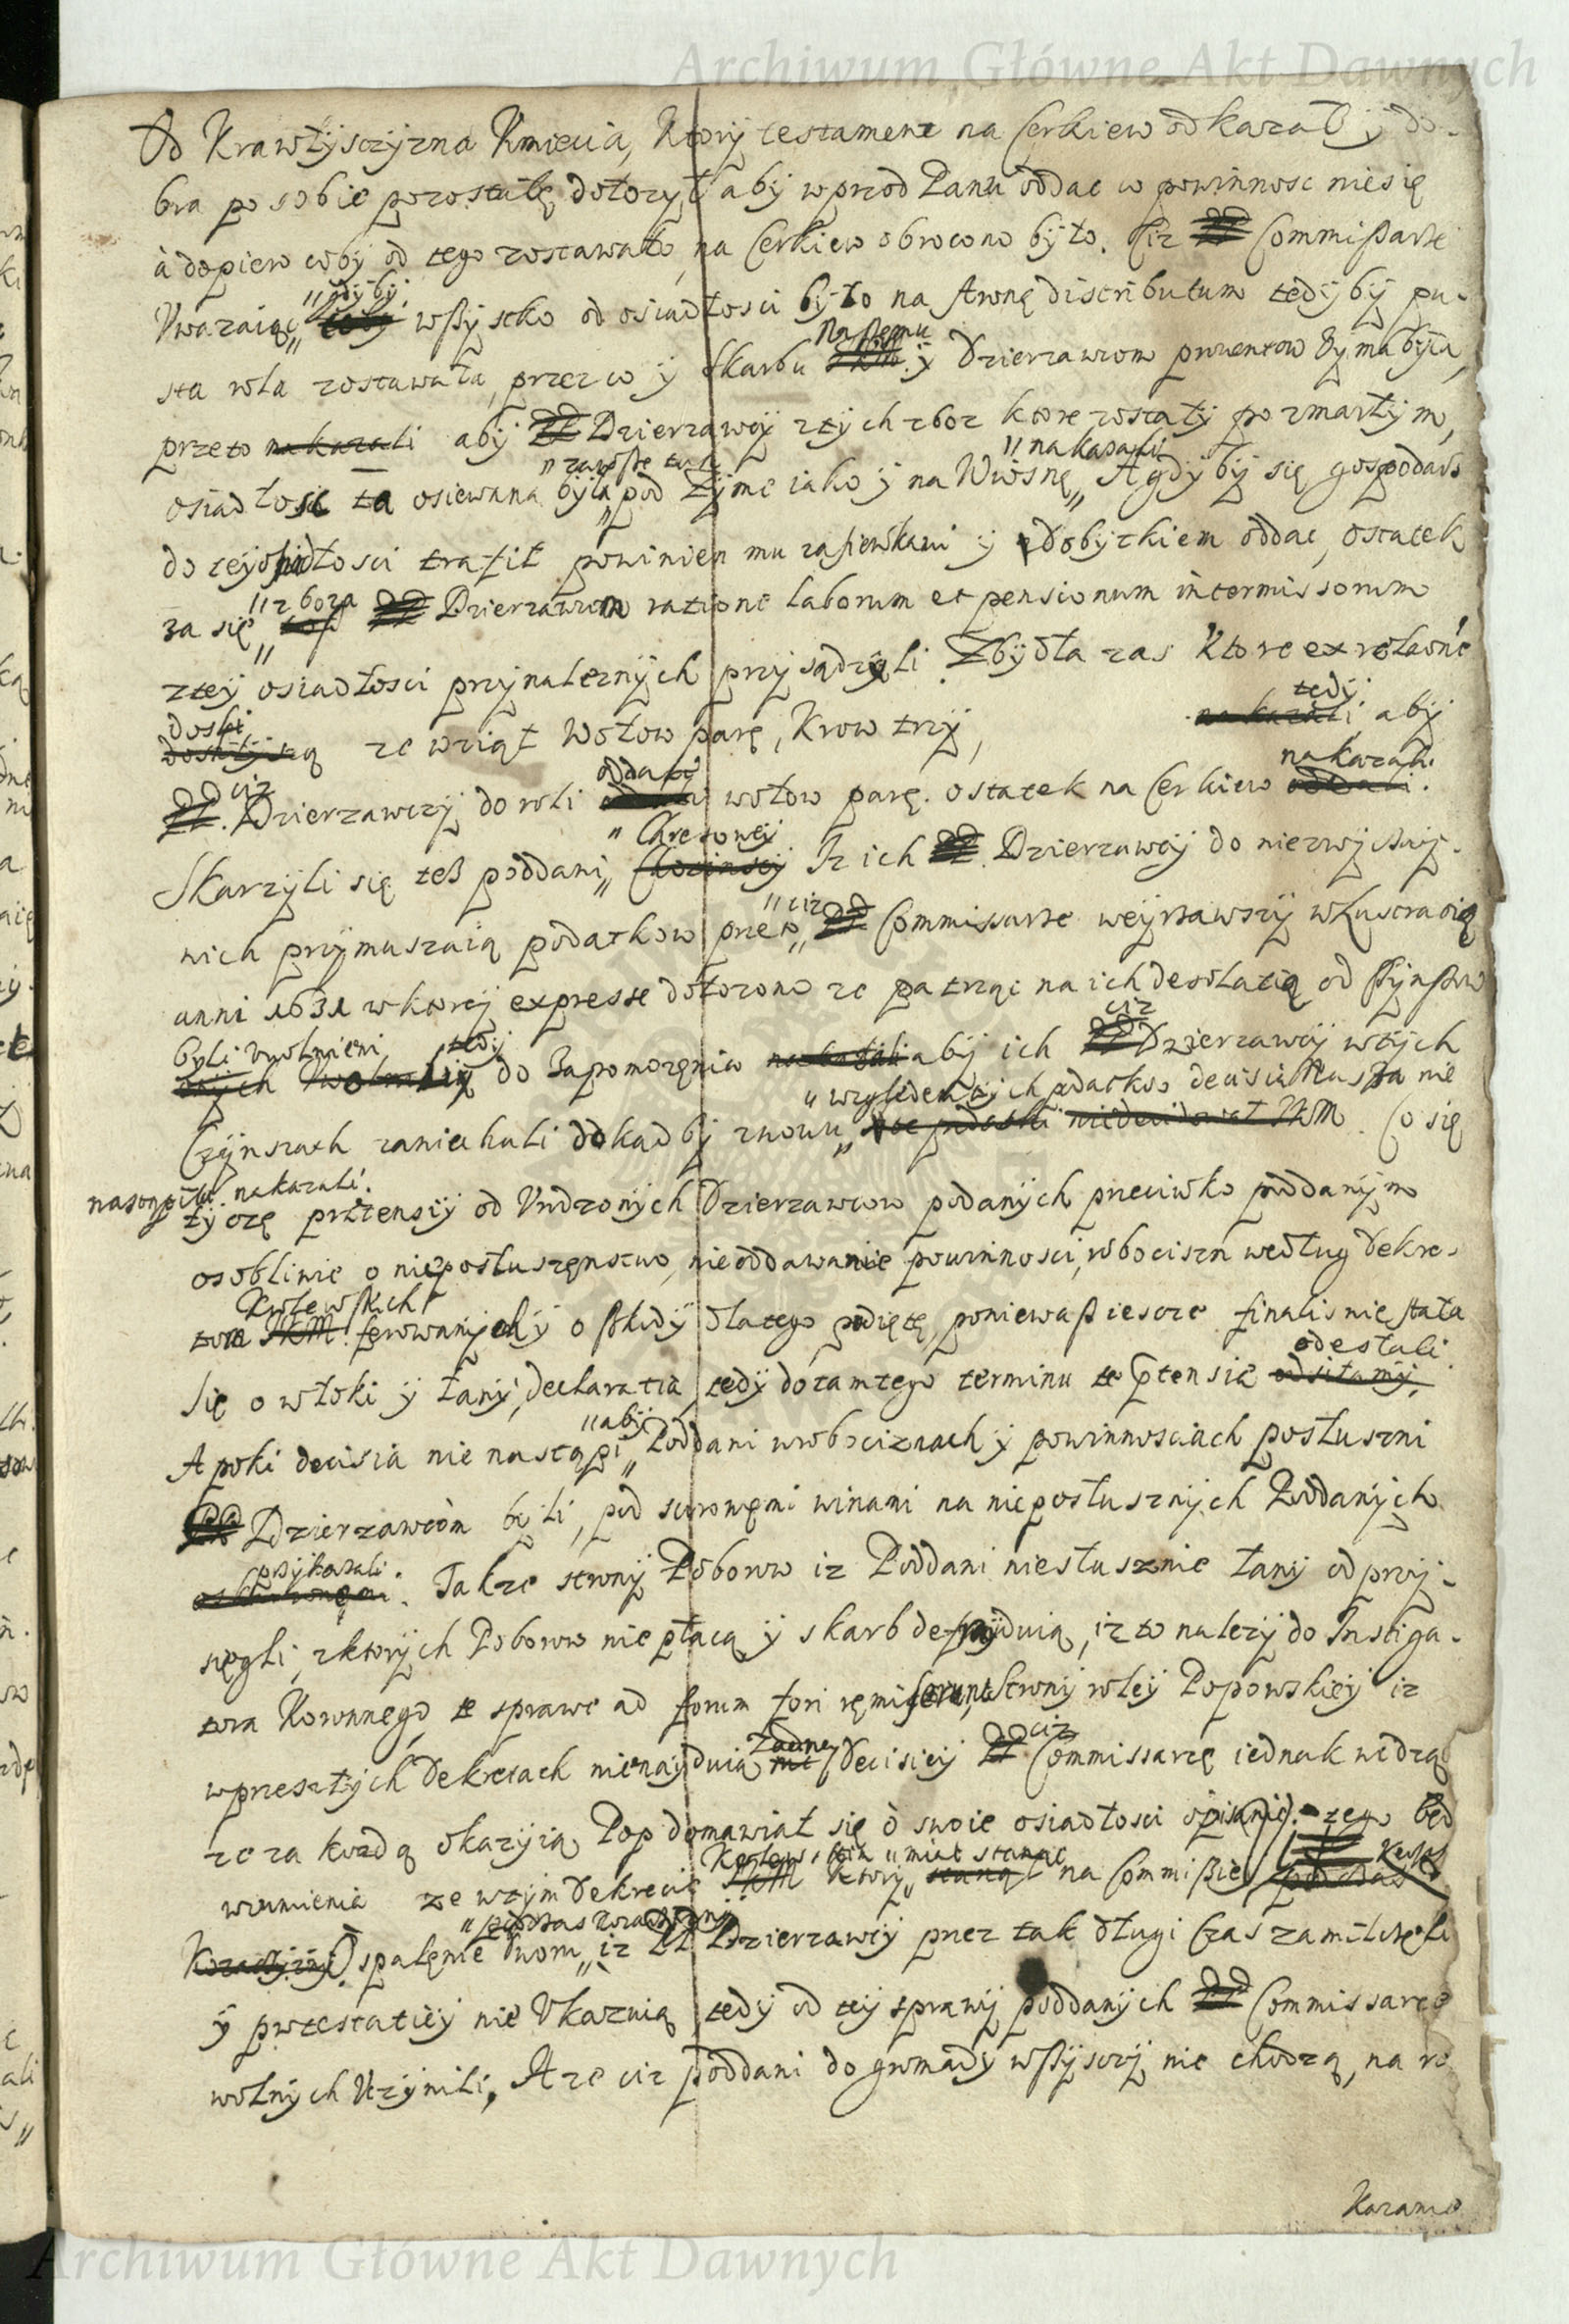 Archiwum Główne Akt Dawnych
Od Krawtysczyzna Kmiecia, Ktory testament na Cerkiew odkazał y do-
bra po sobie pozostałę dołozył aby wprzod Panu oddac co powinnosc niesię
à dopiero coby od tego zostawało, na Cerkiew obrocono było. Ciz Commissarze
Uwazaiąc, gdyby wszystko od osiadłosci było na stronę distributum tedyby pu-
sta rola zostawała, przez co y Skarbu Naszemu y Dzierzawcom prowentow Uymabyła,
przeto nakazali aby Dzierzawcy z tych zboz ktore zostały po zmarłym,
zawsze tak nakazali
osiadłosc ta osiewana była pod Zyme iako y na Wiosnę, A gdyby się gospodarz
do tey osiadłosci trafił powinien mu zasiewkami y z dobytkiem oddac, ostatek
za się zboza Dzierzawcom ratione laborum et pensionum intermissorum
z tey osiadłosci przynaleznych przysądzili. Z bydła zas Ktore ex relatione
doszli tedy
ze wziął Wołow parę, Krow trzy, nakazali aby
ciz oddali nakazali
Dzierzawczy do roli wołow parę. ostatek na Cerkiew oddali.
Skarzyli się tesz poddani, Iz ich Dzierzawcy do niezwyczay-
nich przymuszaią podatkow przeto, ciz Commissarze weyrzawszy w Lustracią
anni 1631 w ktorey expresse dołozono ze patrząc na ich desolatią od
byli uwolnieni, tedy ciz
do Zapomozęnia nakazali aby ich Dzierzawcy w tych
wzgledem tych podatkow decisia Nasza nie
Czynszach zaniechali dokadby znowu Co się
nastąpiła nakazali.
tycze prætensiy od Urodzonych Dzierzawcow podanych przeciwko poddanym
osobliwie o niepołuszęnstwo, nieoddawanie powinnosci, robocizn według dekre-
Krolewskich
tow JKM. ferowanych y o szkody dlatego podiętę, poniewasz iescze finalis nie stała
odesłali
Się o włoki y łany declaratia, tedy do tamtego terminu te ptensie odsiłamy,
aby
A poki decisia nie nastąpi, Poddani w robociznach y powinnosciach posłuszni
Dzierzawcom byli, pod surowęmi winami na nieposłusznych Poddanych
przykazali
Takze strony Poborow iz Poddani niesłusznie łany odprzy-
sięgli, z ktorych Poborow nie płacą y skarb defrauduią, iz to nalezy do Instiga-
tora Koronnego te sprawe ad forum fori remiserunt, Strony roley Popowskiey iz
w przeszłych dekretach nienayduią zadney decisiey ciz Commissarzę iednak widzą
ze za kozdą okazyią Pop domawiał się o swoie osiadłosci
wrumienia ze w tym dekrecie ktory miał stanąc na Commissiey
O spalęnie dwom, iz Dzierzawcy przez tak długi Czas zamilcheli
y protestatiey nie Ukazuią tedy od tey sprawy poddanych Commissarzę
wolnych Uczynili, A ze ciz poddani do gromady wszyscy nie chodzą, na ro
Kazanie
Archiwum Główne Akt Dawnych